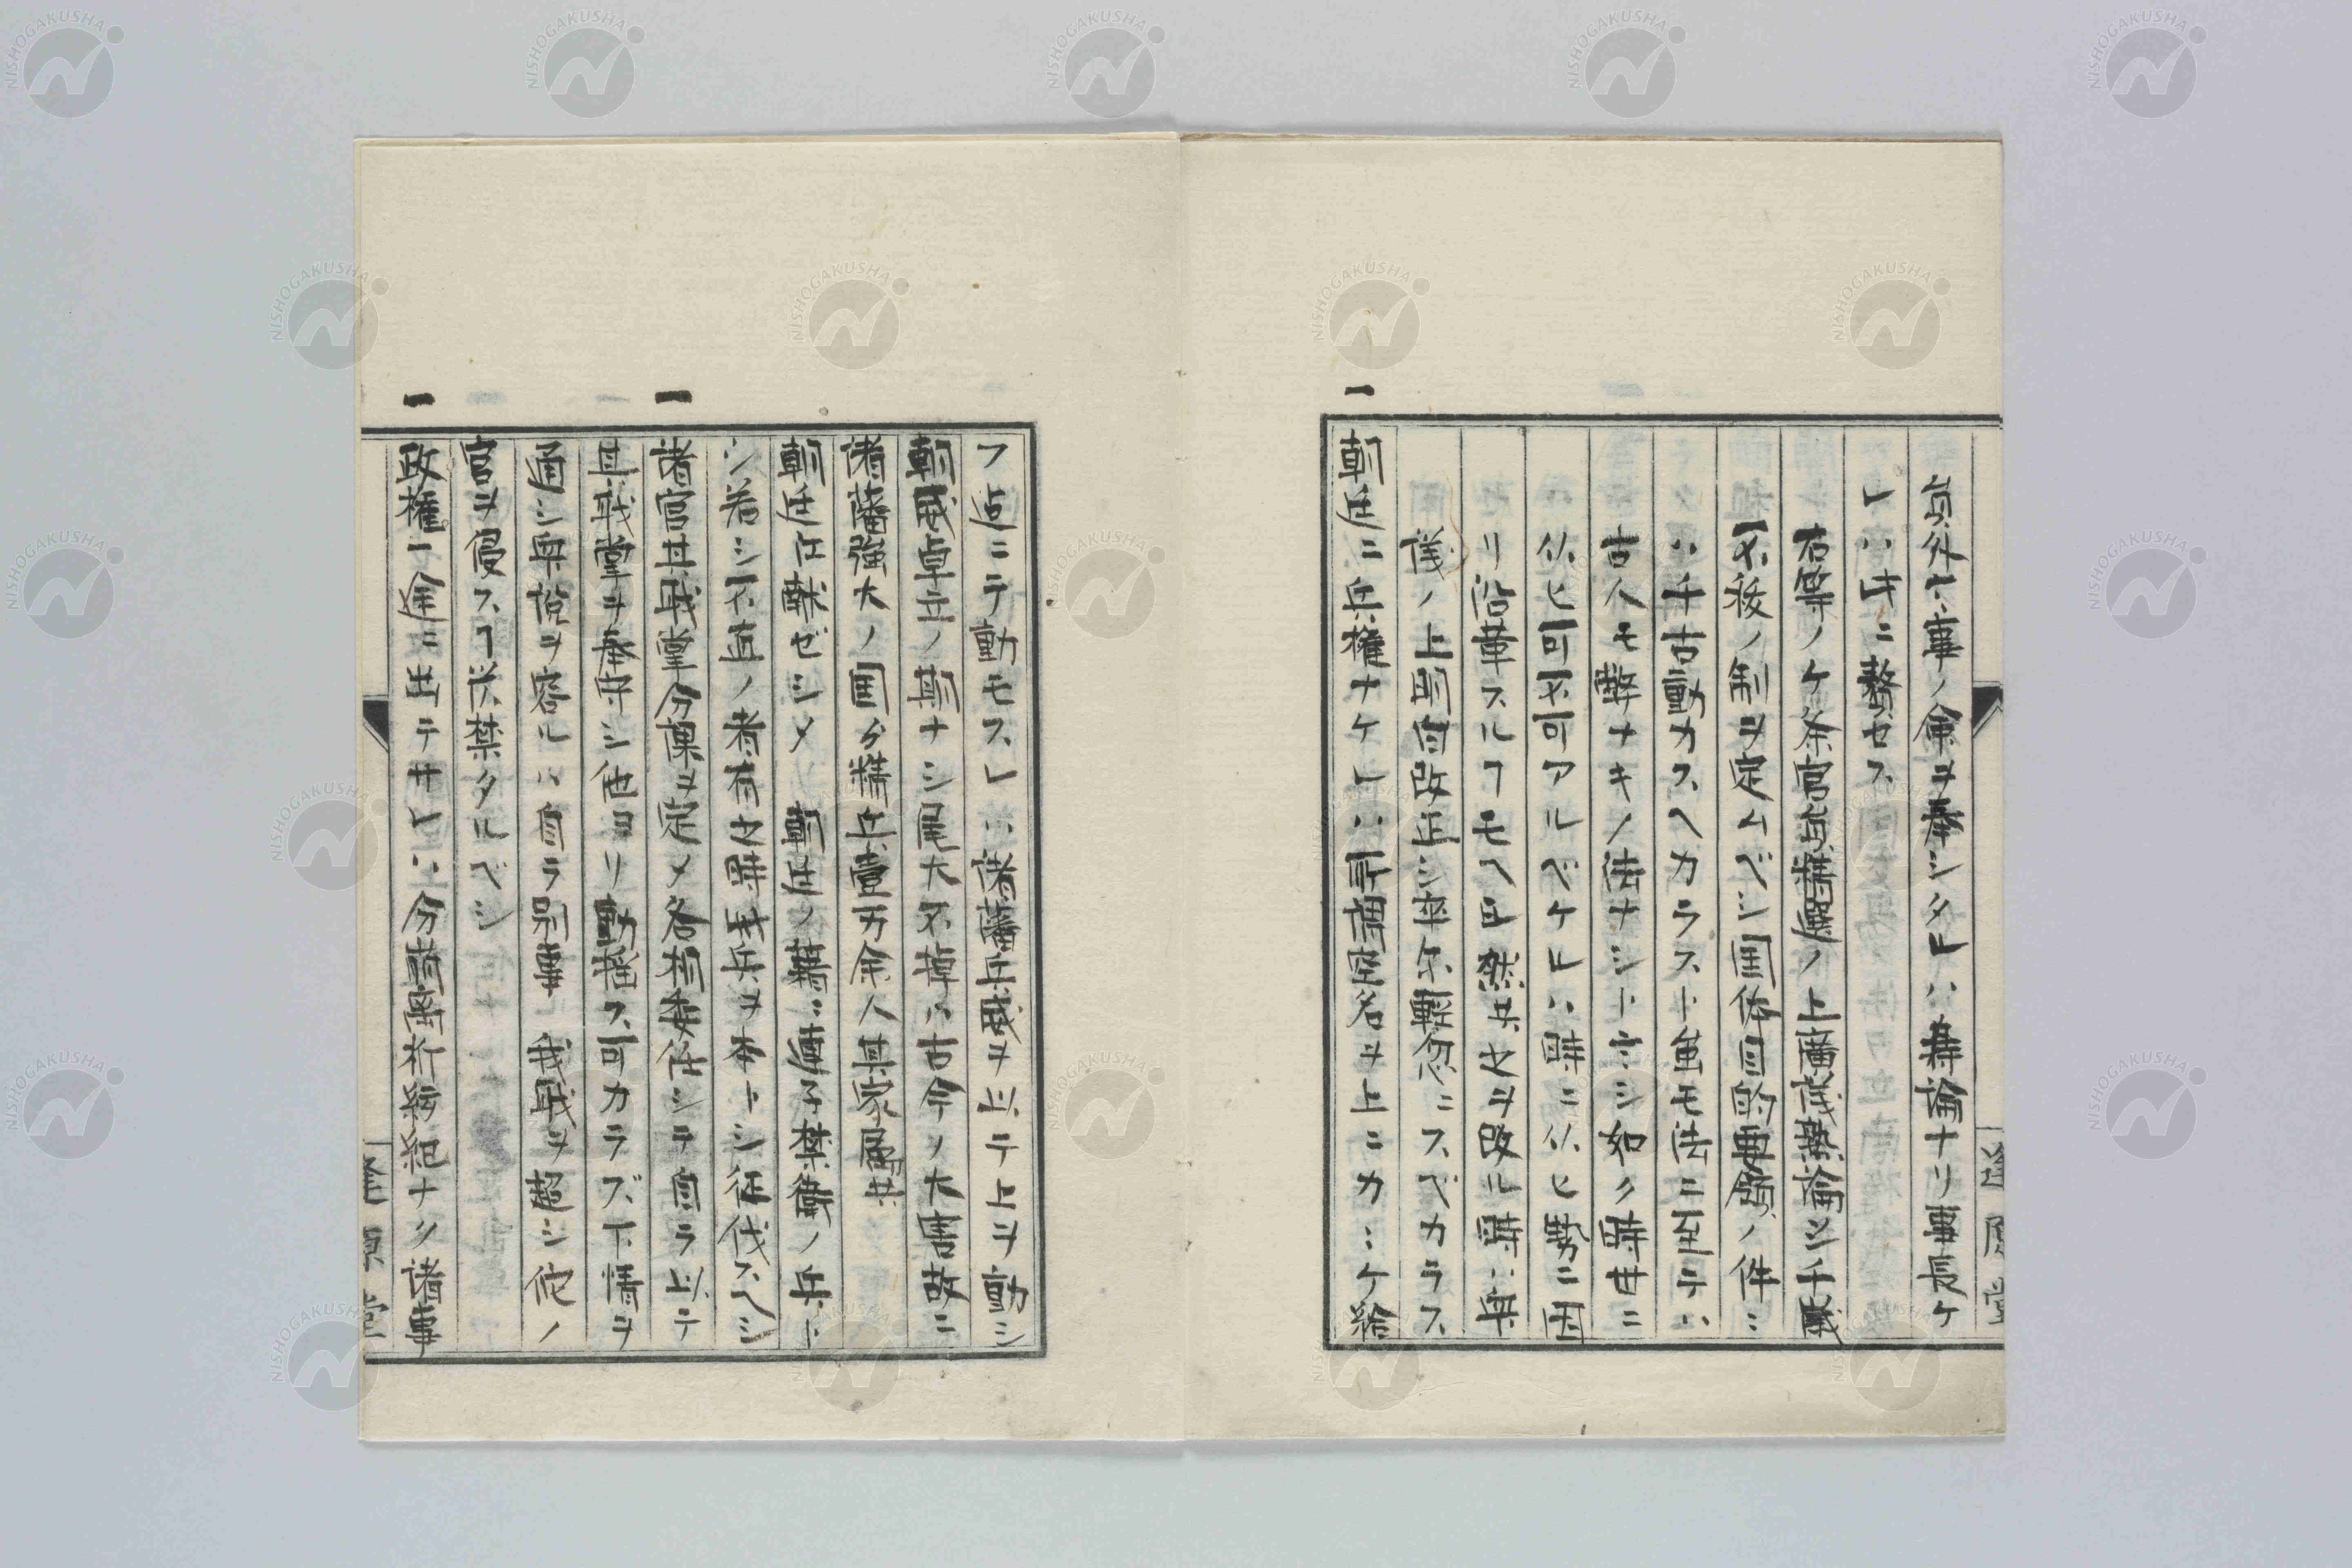 員外ナ事ノ命ヲ奉シタレハ壽論ナリ事長ケ
レハ此ニ贅セス
右等ノケ条官員精選ノ上廣議熟論シ千載
不移ノ制ヲ定ムベシ国体目的要領ノ件ニ
ハ千古動カスヘカラスト虽モ法ニ至テハ
古人モ弊ナキノ法ナシト云シ如ク時世ニ
从ヒ可不可アルベケレハ時ニ从ヒ勢ニ因
リ沿革スルヿモヘシ然共之ヲ改ル時ハ與
儀ノ上則自改正シ率尓軽忽ニスベカラス
一
朝廷ニ兵権ナケレハ所謂空名ヲ上ニカヽケ給
フ迠ニテ動モスレハ諸藩兵威ヲ以テ上ヲ動シ
朝威卓立ノ期ナシ尾大不掉ハ古今ノ大害故ニ
諸藩強大ノ国ゟ精兵壹万余人其家属共
朝廷江献ゼシメ朝廷ノ藩ニ連子禁衛ノ兵ト
シ若シ不直ノ者有之時我兵ヲ本トシ征伐スヘシ
一
諸官其職掌分課ヲ定メ各相委任シテ自ラ以テ
其職掌ヲ奉守シ他ヨリ動揺ス可カラズ下情ヲ
通シ與説ヲ容ルハ自ラ別事我職ヲ超シ佗ノ
官ヲ侵スヿ従禁タルベシ
一
政権一途ニ出テサレハ分崩离析紛紀ナク諸事
逢原堂
逢原堂
NISHOGAKUSHA